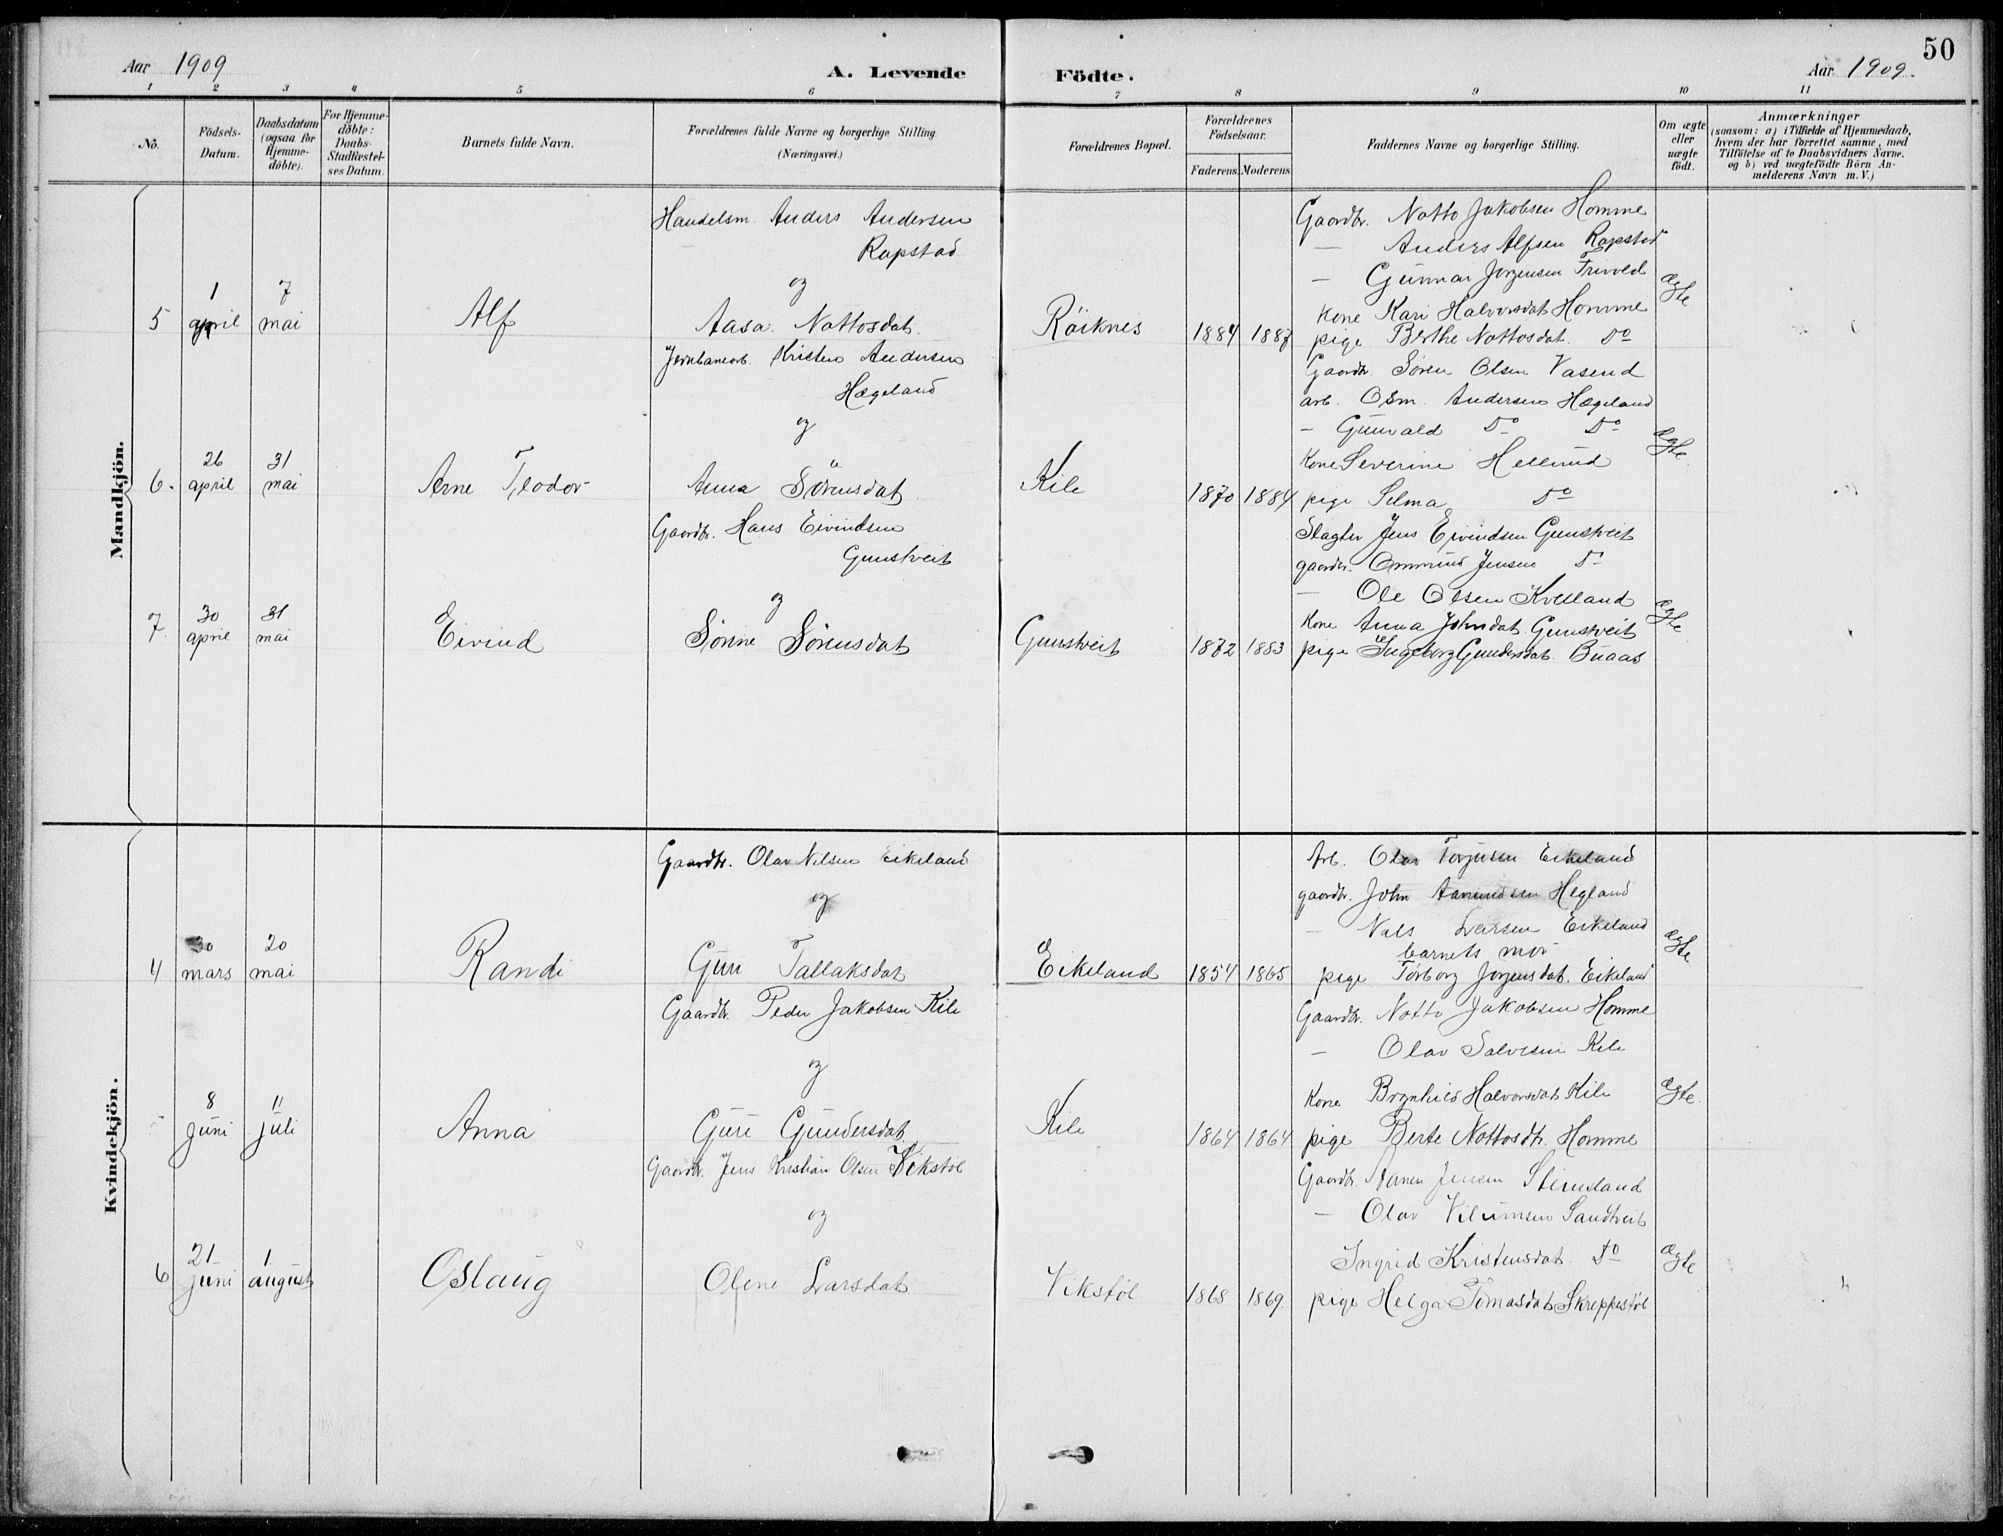 50
Aar 1909
A. Levende
Födte.
Aar 1909.
1 2 3 4 5 6 7 8 9 10 11
No.
Födsels-Datum.
Daabsdatum (ogsaa for Hjemme-döbte).
For Hjemme-döbte: Daabs-Stadfæstel-ses Datum.
Barnets fulde Navn.
Forældrenes fulde Navne og borgerlige Stilling
(Næringsvei.)
Forældrenes Bopæl.
Forældrenes Födselsaar.
Faderens. Moderens.
Faddernes Navne og borgerlige Stilling.
Om ægte eller uægte födt.
Anmærkninger
(saasom: a) i Tilfælde af Hjemmedaab,
hvem der har forrettet samme, med
Tilföielse af to Daabsvidners Navne,
og b) ved uægtefödte Börn An-
melderens Navn m. V.)
Mandkjön.
5
1 april
7 mai
Alf
Handelsm. Anders Andersen
Rapstad
og
Aasa Nottosdat.
Röiknes
1884 1887
Gaardbr. Notto Jakobsen Homme
— Anders Alfsen Rapstad
— Gunnar Jorgensen Trivold
Kone Kari Halvorsdat Homme
pige Berthe Nottosdat. Do
ægte
6.
26 april
31 mai
Arne Teodor
Jernbanearb. Kristen Andersen
Hægeland
og
Anna Sörensdat.
Kile
1870 1884
Gaardbr. Sören Olsen Vasend
arb. Osm. Andersen Hægeland
— Gunvald Do Do
Kone Severine Hellund
pige Selma Do
ægte.
7.
30 april
31 mai
Eivind
Gaardbr. Hans Eivindsen
Gunstveit
og
Sönne Sörensdat
Gunstveit
1872 1883
Slagter Jens Eivindsen Gunstveit
gaardbr. Ommund Jensen Do
— Ole Olsen Kvelland
Kone Anna Johnsdat. Gunstveit
pige Ingeborg Gundersdat. Buaas
ægte
Kvindekjön.
4
30 mars
20 mai
Randi
Gaardbr. Olav Nilsen Eikeland
og
Guri Tallaksdat
Eikeland
1854 1865
Arb. Olav Torjusen Eikeland
gaardbr. John Aanundsen Hegland
— Nils Larsen Eikeland
barnets mor
pige Torborg Jorgensdat. Eikeland
ægte
5
8 juni
11 juli
Anna
Gaardbr. Peder Jakobsen Kile
og
Guri Gundersdat
Kile
1864 1864
Gaardbr. Notto Jakobsen Homme
— Olav Salvesen Kile
Kone Brynhild Halvorsdat Kile
pige Berte Nottosdtr. Homme
ægte.
6
21 juni
1 august
Oslaug
Gaardbr. Jens Kristian Olsen Vikstöl
og
Olene Larsdat
Vikstöl
1868 1869.
Gaardbr. Aanen Jensen Stemland
— Olav Vilumsen Sandtveit
Ingrid Kristensdat. Do
pige Helga Tomasdat Skreppestöl
ægte